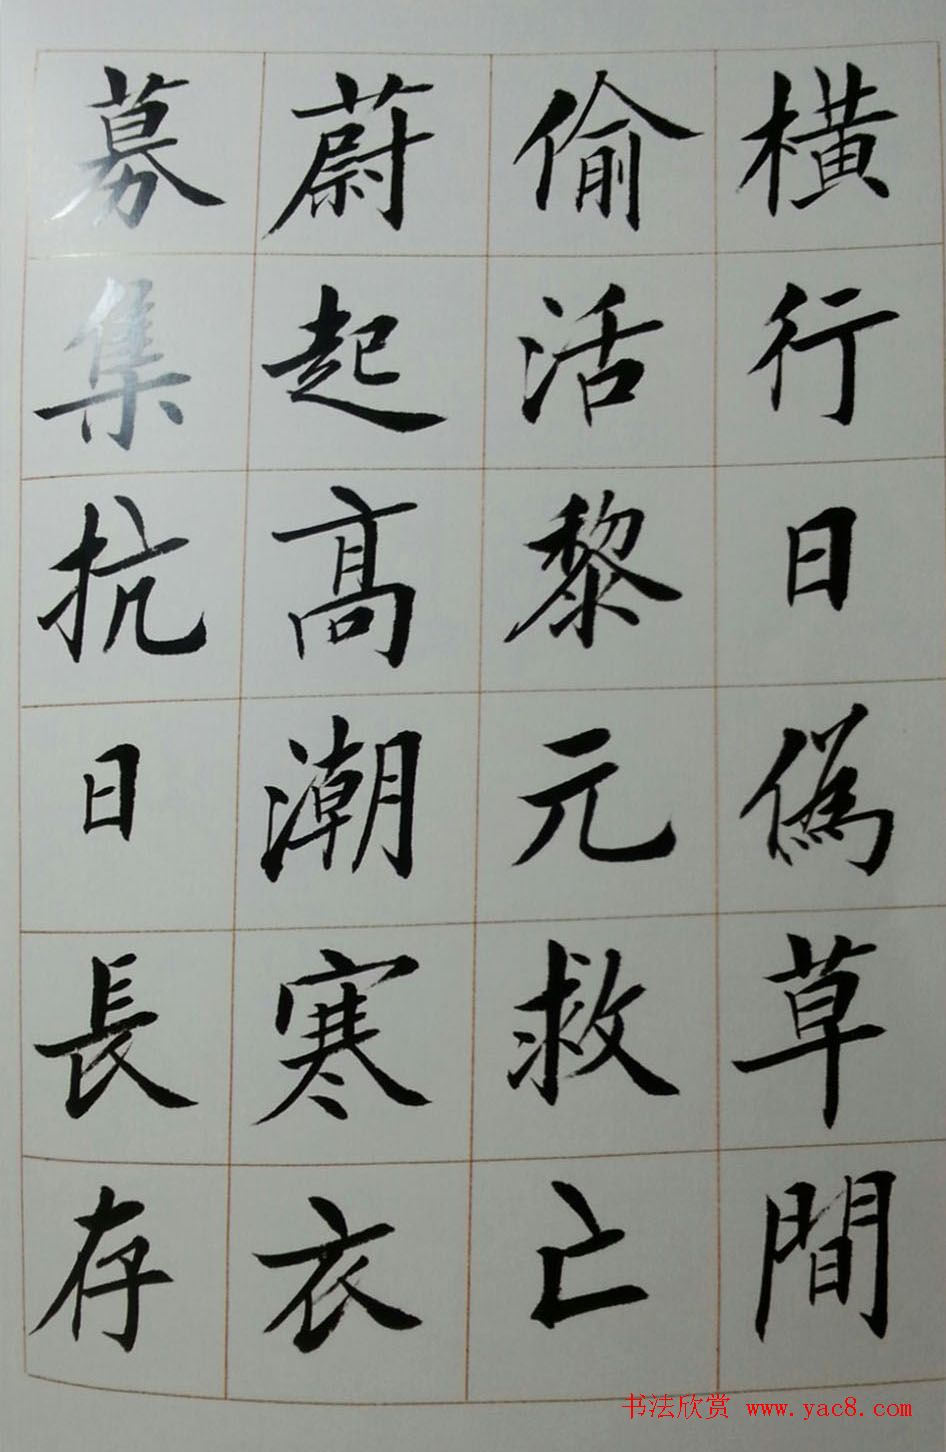 橫行日偽草間
偷活黎元救亡
蔚起高潮寒衣
募集抗日長存
书法欣赏 www.yac8.com